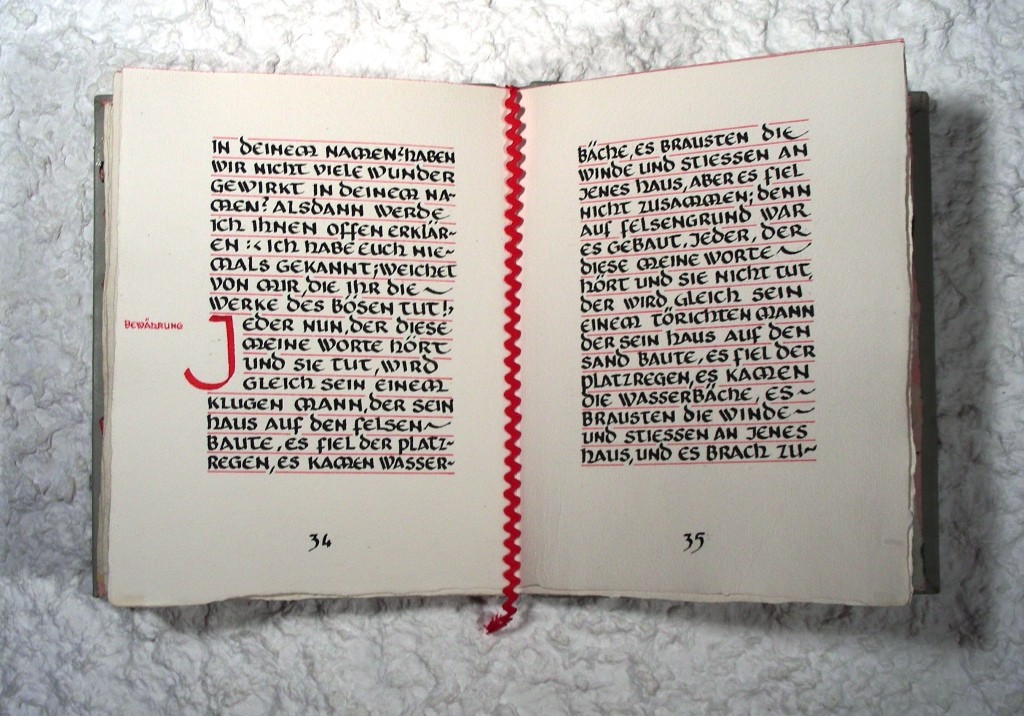 IN DEINEM NAMEN? HABEN
WIR NICHT VIELE WUNDER
GEWIRKT IN DEINEM NA-
MEN? ALSDANN WERDE
ICH IHNEN OFFEN ERKLÄR-
EN :‹ ICH HABE EUCH NIE-
MALS GEKANNT; WEICHET
VON MIR, DIE IHR DIE
WERKE DES BÖSEN TUT!›
BEWÄHRUNG
JEDER NUN, DER DIESE
MEINE WORTE HÖRT
UND SIE TUT, WIRD
GLEICH SEIN EINEM
KLUGEN MANN, DER SEIN
HAUS AUF DEN FELSEN
BAUTE, ES FIEL DER PLATZ-
REGEN, ES KAMEN WASSER-
34
BÄCHE, ES BRAUSTEN DIE
WINDE UND STIESSEN AN
JENES HAUS, ABER ES FIEL
NICHT ZUSAMMEN; DENN
AUF FELSENGRUND WAR
ES GEBAUT. JEDER, DER
DIESE MEINE WORTE
HÖRT UND SIE NICHT TUT,
DER WIRD GLEICH SEIN
EINEM TÖRICHTEN MANN
DER SEIN HAUS AUF DEN
SAND BAUTE, ES FIEL DER
PLATZREGEN, ES KAMEN
DIE WASSERBÄCHE, ES
BRAUSTEN DIE WINDE
UND STIESSEN AN JENES
HAUS, UND ES BRACH ZU-
35